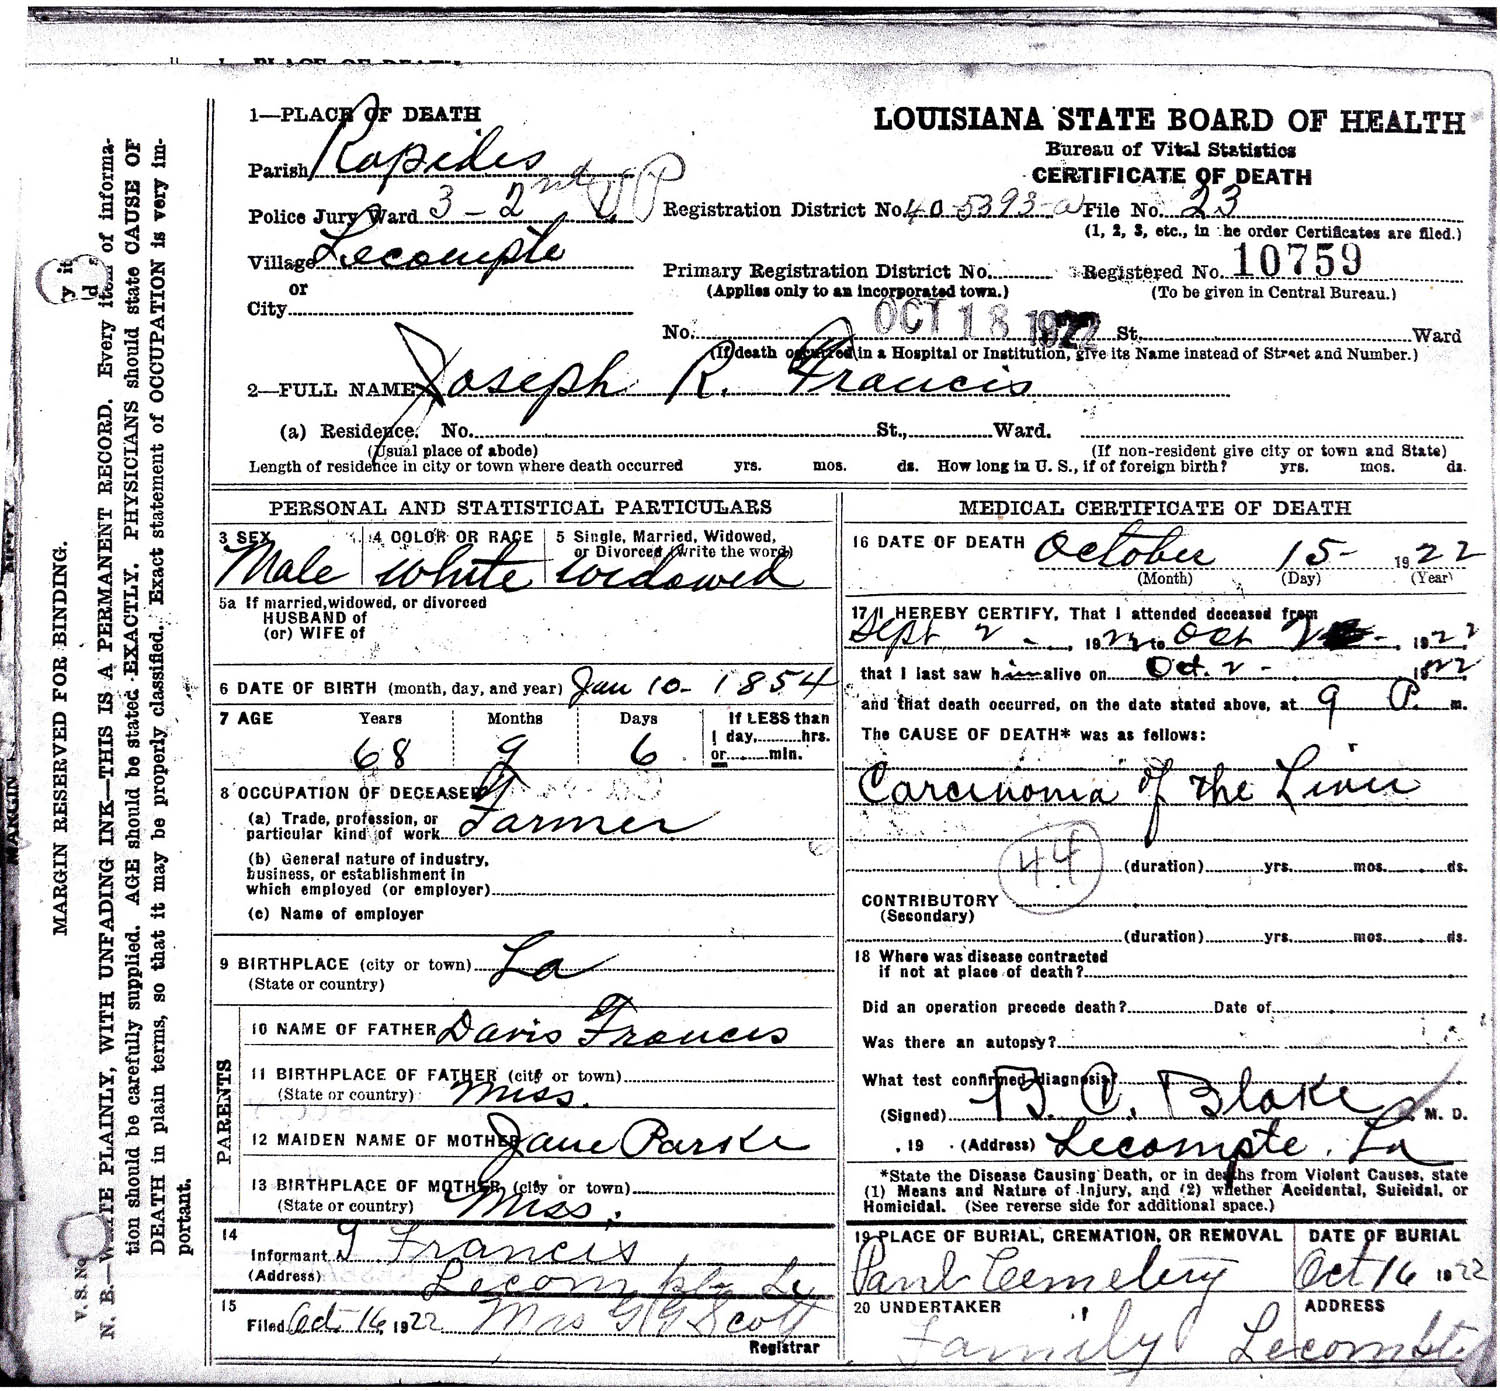 1—PLACE OF DEATH
Parish Rapides
Police Jury Ward 3-2nd
Village Lecompte
or
City
LOUISIANA STATE BOARD OF HEALTH
Bureau of Vital Statistics
CERTIFICATE OF DEATH
Registration District No. 40-5393-a File No. 23
(1, 2, 3, etc., in the order Certificates are filed.)
Primary Registration District No. Registered No. 10759
(Applies only to an incorporated town.) (To be given in Central Bureau.)
OCT 18 1922
No. St. Ward
(If death occurred in a Hospital or Institution, give its Name instead of Street and Number.)
2—FULL NAME Joseph R. Francis
(a) Residence. No. St., Ward.
(Usual place of abode) (If non-resident give city or town and State)
Length of residence in city or town where death occurred yrs. mos. ds. How long in U. S., if of foreign birth? yrs. mos. ds.
PERSONAL AND STATISTICAL PARTICULARS
3 SEX 4 COLOR OR RACE 5 Single, Married, Widowed,
or Divorced (Write the word)
Male white widowed
5a If married, widowed, or divorced
HUSBAND of
(or) WIFE of
6 DATE OF BIRTH (month, day, and year) Jan 10- 1854
7 AGE Years Months Days If LESS than
1 day, hrs.
68 9 6 or min.
8 OCCUPATION OF DECEASED
(a) Trade, profession, or
particular kind of work Farmer
(b) General nature of industry,
business, or establishment in
which employed (or employer)
(c) Name of employer
9 BIRTHPLACE (city or town) La
(State or country)
PARENTS
10 NAME OF FATHER Davis Francis
11 BIRTHPLACE OF FATHER (city or town)
(State or country) Miss.
12 MAIDEN NAME OF MOTHER Jane Parke
13 BIRTHPLACE OF MOTHER (city or town)
(State or country) Miss.
14
Informant Francis
(Address) Lecompte La
15
Filed Oct 16, 1922 Mrs G G Scott
Registrar
MEDICAL CERTIFICATE OF DEATH
16 DATE OF DEATH October 15- 1922
(Month) (Day) (Year)
17 I HEREBY CERTIFY, That I attended deceased from
Sept 2 -, 1922 to Oct 2 -, 1922
that I last saw him alive on Oct. 2 - 1922
and that death occurred, on the date stated above, at 9 P. m.
The CAUSE OF DEATH* was as follows:
Carcinoma of the Liver
44
(duration) yrs. mos. ds.
CONTRIBUTORY
(Secondary)
(duration) yrs. mos. ds.
18 Where was disease contracted
if not at place of death?
Did an operation precede death? Date of
Was there an autopsy?
What test confirmed diagnosis?
(Signed) B. C. Blake M. D.
, 19 (Address) Lecompte, La
*State the Disease Causing Death, or in deaths from Violent Causes, state
(1) Means and Nature of Injury, and (2) whether Accidental, Suicidal, or
Homicidal. (See reverse side for additional space.)
19 PLACE OF BURIAL, CREMATION, OR REMOVAL DATE OF BURIAL
Paul Cemetery Oct 16 1922
20 UNDERTAKER ADDRESS
Family Lecompte
MARGIN RESERVED FOR BINDING.
V. S. No.
N. B.—WRITE PLAINLY, WITH UNFADING INK—THIS IS A PERMANENT RECORD. Every item of informa-
tion should be carefully supplied. AGE should be stated EXACTLY. PHYSICIANS should state CAUSE OF
DEATH in plain terms, so that it may be properly classified. Exact statement of OCCUPATION is very im-
portant.